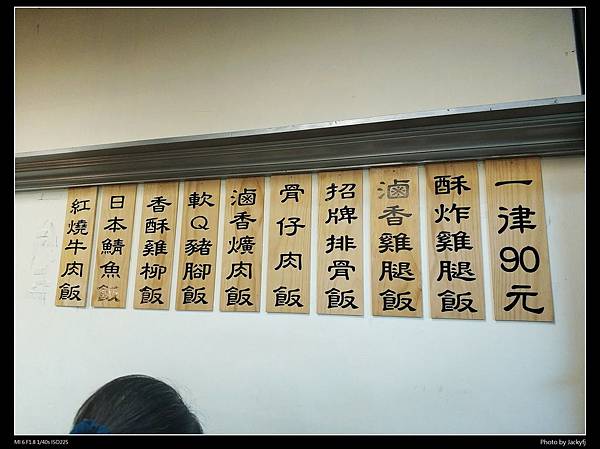 一律90元
酥炸雞腿飯
滷香雞腿飯
招牌排骨飯
骨仔肉飯
滷香爌肉飯
軟Q豬腳飯
香酥雞柳飯
日本鯖魚飯
紅燒牛肉飯
MI 6 F1.8 1/40s ISO225
Photo by Jackyfj